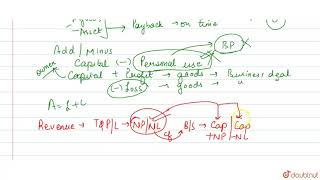 Asset → Payback → on time
Add / Minus
BP
Capital (-) Personal use
owner Capital + Profit → goods → Business deal
(-) Loss → goods → "
A = L + C
Revenue → T & P/L → NP/NL B/S → Cap | Cap
+NP | -NL
doubtnut